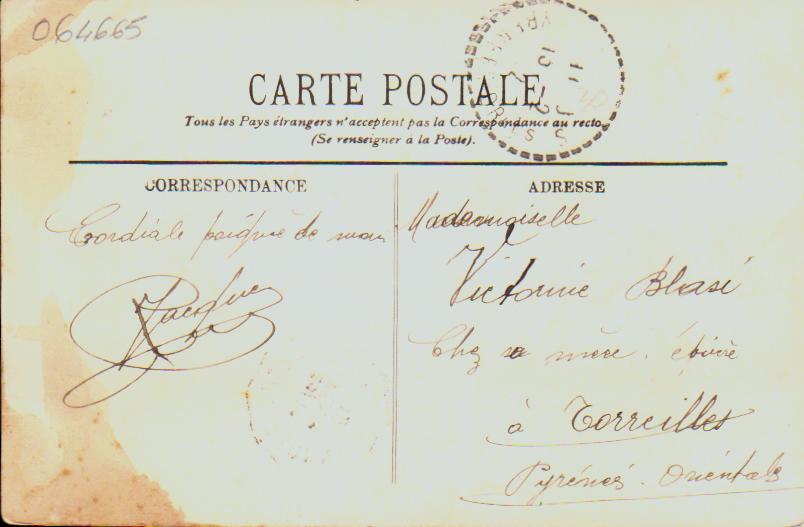 064665
CARTE POSTALE
Tous les Pays étrangers n'acceptent pas la Correspondance au recto
(Se renseigner à la Poste).
CORRESPONDANCE
Cordiale poignée de main
Jacques
ADRESSE
Mademoiselle
Victorine Blasi
Chez sa mère. épicière
à Torreilles
Pyrénées. Orientales